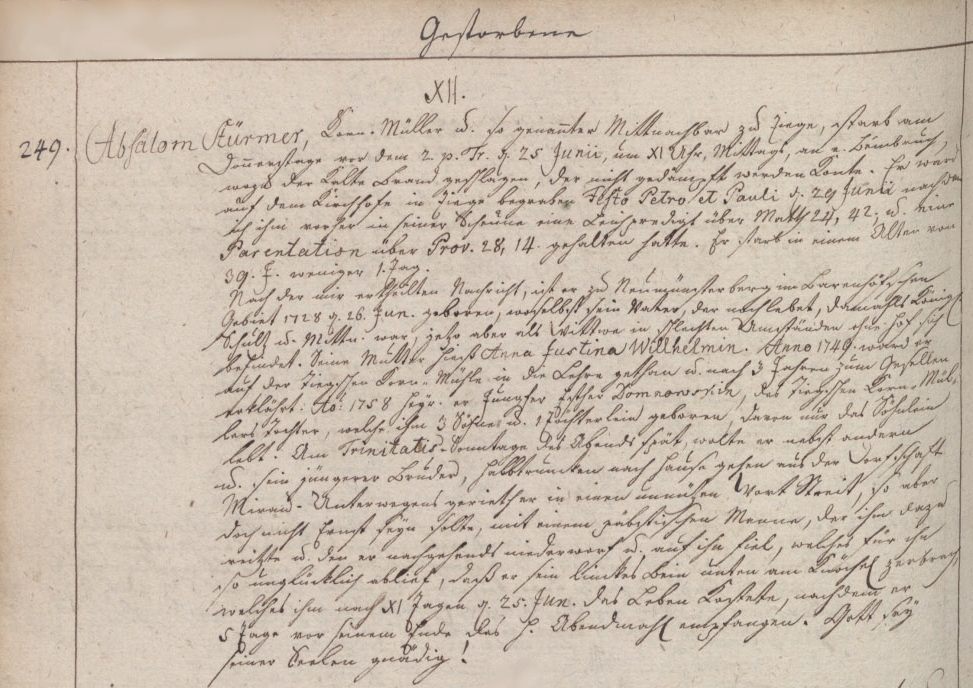 Gestorbene
XII.
249. Absalom Stürmer, Korn-Müller u. so genannter Mittnachbar zu Ziege, starb am
Donnerstage vor dem 2. p. Tr. d. 25 Junii, um XI Uhr, Mittags, an e. Beinbruch,
wozu der kalte Brand geschlagen, der nicht gedämpft werden konte. Er ward
auf dem Kirchhofe in Ziege begraben Festo Petro et Pauli d. 29 Junii nachdem
ich ihm vorher in seiner Scheune eine Leichpredigt über Matth 24, 42. u. eine
Parentation über Prov. 28, 14. gehalten hatte. Er starb in einem Alter von
39. J. weniger 1. Tag.
Nach der mir ertheilten Nachricht, ist er zu Neumünsterberg im Barenhöfschen
Gebiet 1728 d. 26. Jun. geboren, woselbst sein Vater, der noch lebet, damahls
Schultz u. Mittn. war, jetzo aber als Wittwer in schlechten Umständen ohne Hof sich
befindet. Seine Mutter hiess Anna Justina Willhelmin. Anno 1749. ward er
auf der Ziegschen Korn-Mühle in die Lehre gethan u. nach 3 Jahren zum Gesellen
erklährt. Ao: 1758 heyr. er Jungfer Esther Domnowskin, des Ziegschen Korn-Mül-
lers Tochter, welche ihm 3 Söhne u. 1 Töchterlein geboren, davon nur das Söhnlein
lebt. Am Trinitatis-Sonntage des Abends spät, wolte er nebst andern
u. sein jüngerer Bruder, halbtrunken nach Hause gehen aus der Dorfschaft
Mirau. Unterwegens gerieth er in einen unnützen Wort Streit, so aber
doch nicht Ernst seyn solte, mit einem päbstischen Manne, der ihn dazu
reitzte u. den er nachgehends niederworf u. auf ihn fiel, welches für ihn
so unglücklich ablief, daß er sein linckes Bein unten am Knöchel zerbrach,
welches ihm nach XI Tagen d. 25. Jun. das Leben kostete, nachdem er
5 Tage vor seinem Ende das H. Abendmahl empfangen. Gott sey
seiner Seelen gnädig!